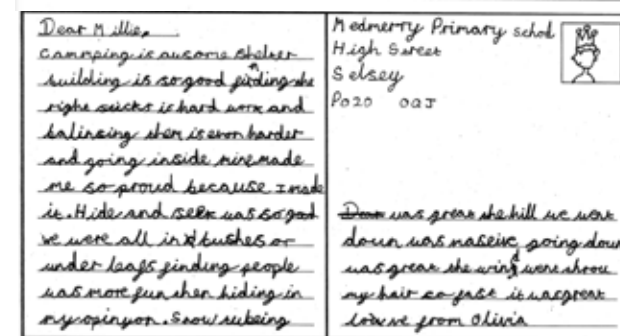 Dear Millie,
Cammping is ausome shelter
building is so good finding the
right sticks is hard worn and
balinsing them is even harder
and going inside mine made
me so proud because I made
it. Hide and seek was so good
we were all in bushes or
under leafs finding people
was more fun then hiding in
my opinyon. Snow tubeing
Medmerry Primary school
High Street
Selsey
Po20 0QJ
was great the hill we went
down was maseive going down
was great the wind went throu
my hair so fast it was great
love from Olivia